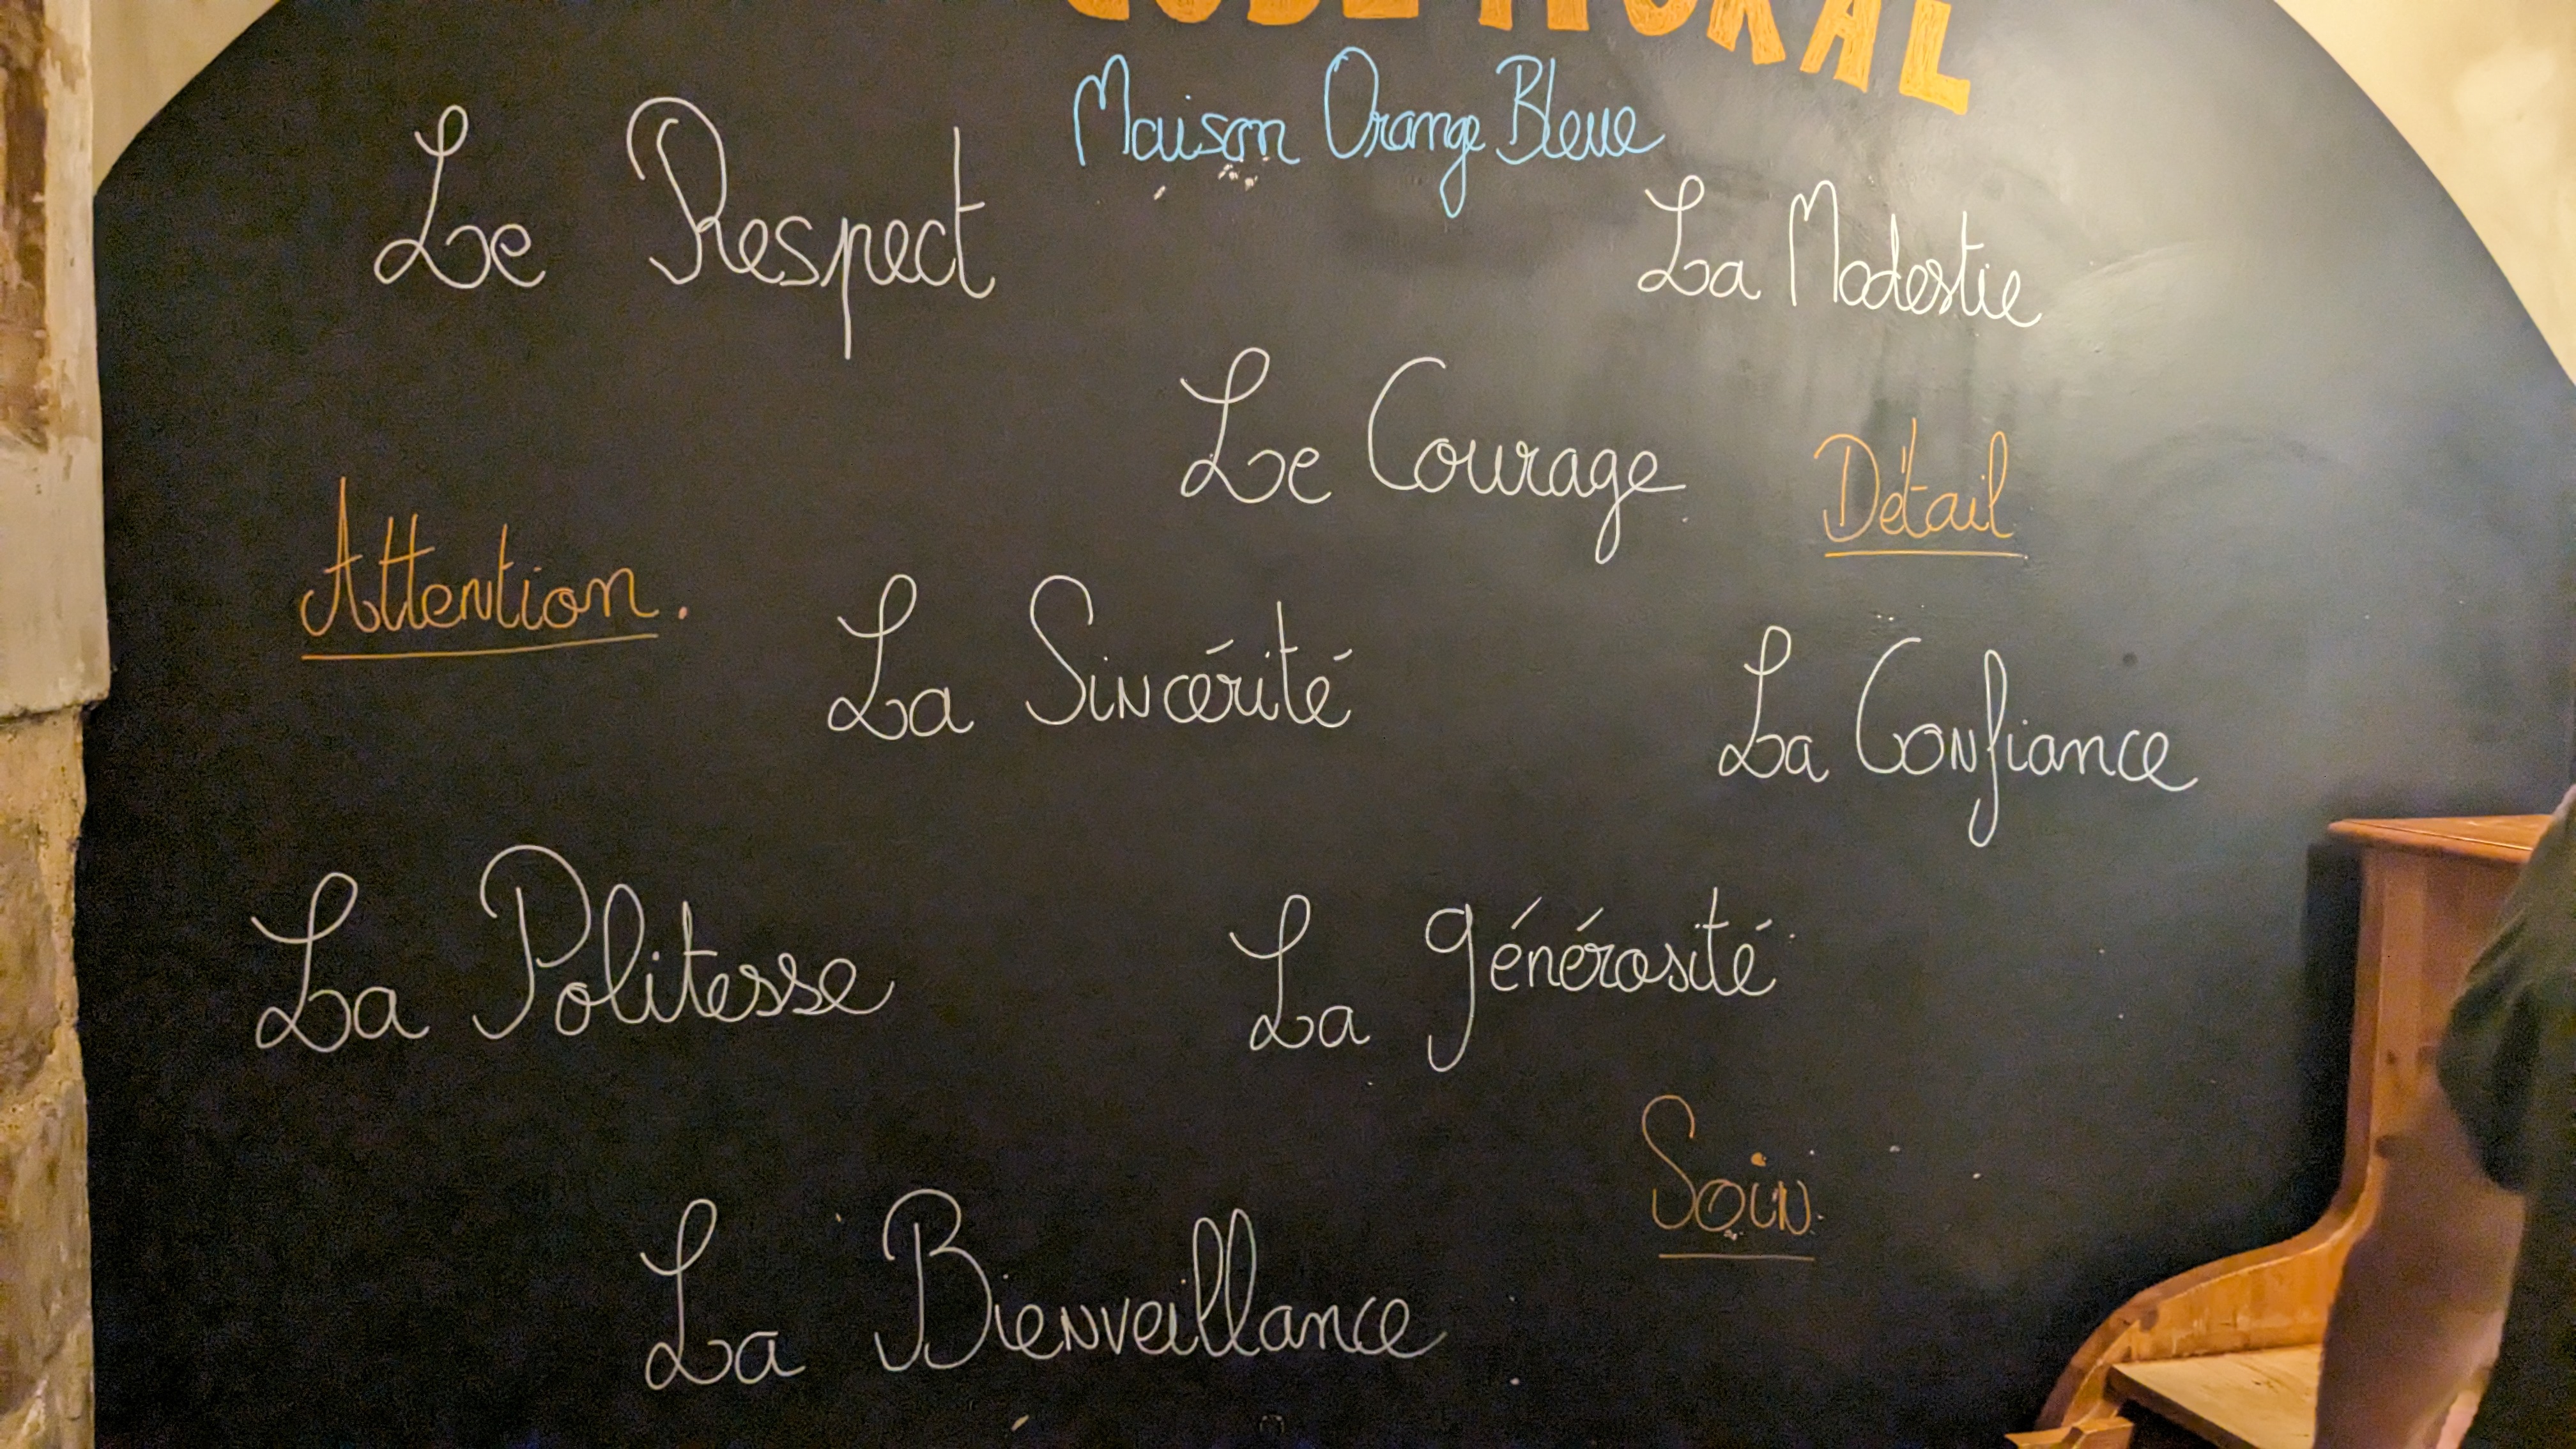 CODE MORAL
Maison Orange Bleue
Le Respect
La Modestie
Le Courage
Détail
Attention.
La Sincérité
La Confiance
La Politesse
La générosité
Soin.
La Bienveillance